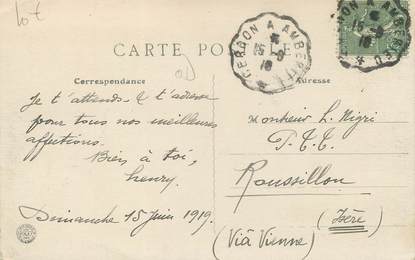 lot
CARTE POSTALE
CERDON A AMBERIEU
15-9
18
Correspondance
Adresse
Je t'attends & t'adresse
pour tous nos meilleures
affections.
Bien à toi,
henry.
Dimanche 15 Juin 1919.
Monsieur L. Nigri
P.T.T.
Roussillon
(Isère)
(Viâ Vienne)